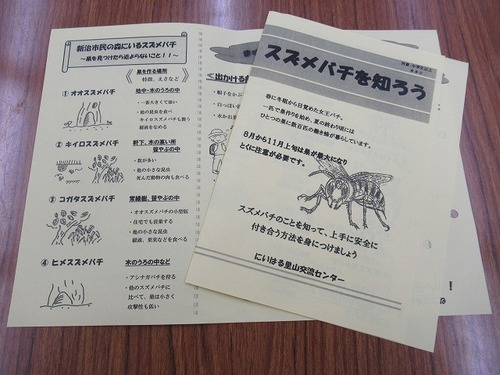 新治市民の森にいるスズメバチ
～巣を見つけたら近よらないこと！！～
巣を作る場所
特徴、えさなど
① オオスズメバチ
地中・木のうろの中
・一番大きくて強い
・他の昆虫を食べ
② キイロスズメバチ
軒下、木の高い所
・数が多い
・他の小さな昆虫
死んだ動物の肉も食べる
③ コガタスズメバチ
常緑樹、笹やぶの中
・オオスズメバチの小型版
・住宅でも営巣する
・他の小さな昆虫
樹液、果実などを食べる
④ ヒメスズメバチ
木のうろの中など
・アシナガバチを狩る
・他のスズメバチに
比べて、巣は小さく
攻撃性も低い
スズメバチを知ろう
春に冬眠から目覚めた女王バチ。
一匹で巣作りを始め、夏の終わり頃には
ひとつの巣に数百匹の働き蜂が暮らしています。
8月から11月上旬は巣が最大になり
とくに注意が必要です。
スズメバチのことを知って、上手に安全に
付き合う方法を身につけましょう
にいはる里山交流センター